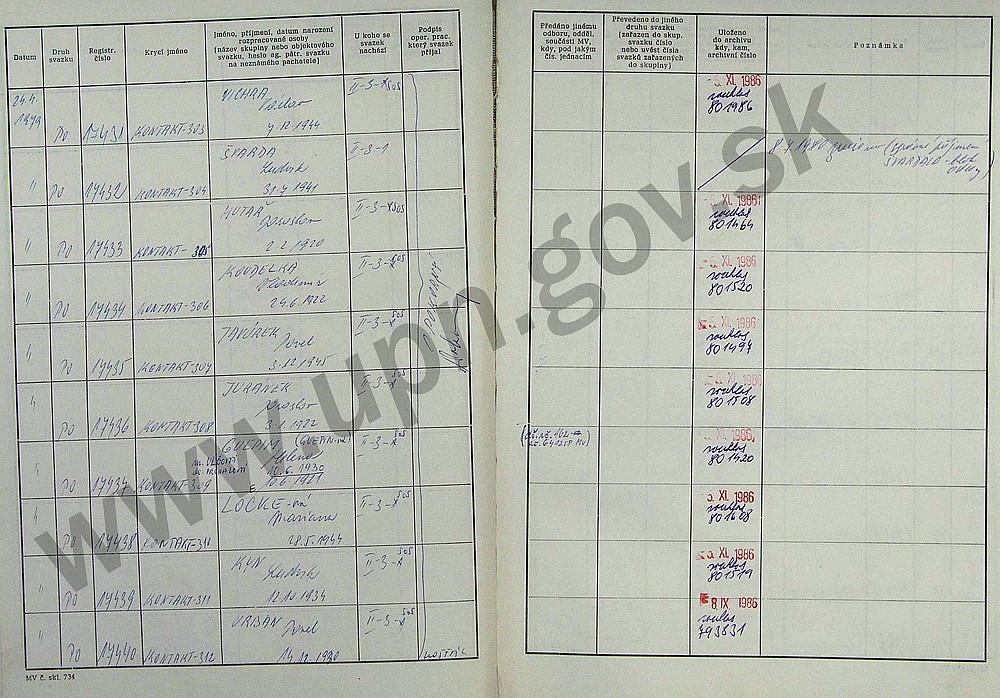 Datum
Druh svazku
Registr. číslo
Krycí jméno
Jméno, příjmení, datum narození
rozpracované osoby
(název skupiny nebo objektového
svazku, heslo eg. pátr. svazku
na neznámého pachatele)
U koho se
svazek
nachází
Podpis
oper. prac.
který svazek
přijal
24.4.
1979 PO 17431 KONTAKT-303
VICHRA
Václav
7.12.1944
II-3-X 505
" PO 17432 KONTAKT-304
ŠVARDA
Ludvík
31.7.1941
II-3-1
" PO 17433 KONTAKT-305
HUTAŘ
Jaroslav
2.2.1920
II-3-X 505
" PO 17434 KONTAKT-306
KOUDELKA
Vladimír
24.6.1922
II-3-X 505
" PO 17435 KONTAKT-307
TAVÍREK
Josef
3.12.1945
II-3-X 505
" PO 17436 KONTAKT-308
JURÁNEK
Jaroslav
3.1.1922
II-3-X 505
" PO 17437 KONTAKT-309
GUEPIN (GUEPIN-ová)
Helena
10.6.1930
II-3-X 505
" PO 17438 KONTAKT-310
LOCKE-ová
Mariana
28.5.1944
II-3-X 505
" PO 17439 KONTAKT-311
KYN
Ludvík
12.10.1934
II-3-X 505
" PO 17440 KONTAKT-312
URBAN
Josef
14.12.1920
II-3-X 505
KOŠŤÁL
MV č. skl. 734
Předáno jinému
odboru, odděl.
součásti MV,
kdy, pod jakým
čís. jednacím
Převedeno do jiného
druhu svazku
(zařazen do skup.
svazku číslo
nebo uvést čísla
svazků zařazených
do skupiny)
Uloženo
do archívu
kdy, kam,
archívní číslo
Poznámka
XI. 1986
souhlas
801986
XI. 1986
souhlas
801464
XI. 1986
souhlas
801520
XI. 1986
souhlas
801497
XI. 1986
souhlas
801508
XI. 1986
souhlas
801420
XI. 1986
souhlas
801608
XI. 1986
souhlas
801519
8. IX. 1986
souhlas
793831
www.upn.gov.sk